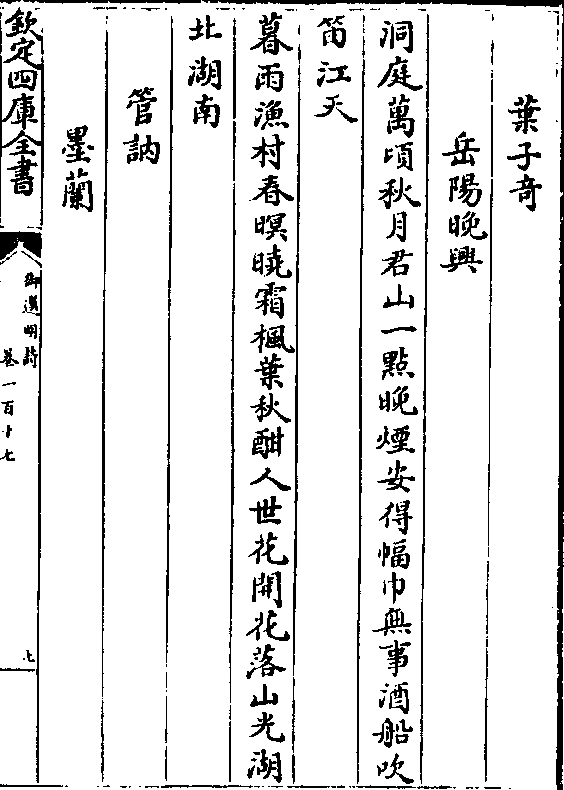 葉子竒
岳陽晚興
洞庭萬頃秋月君山一點晚煙安得幅巾無事酒船吹
笛江天
暮雨漁村春暝曉霜楓葉秋酣人世花開花落山光湖
北湖南
管訥
墨蘭
欽定四庫全書
御選明詩
卷一百十七
七